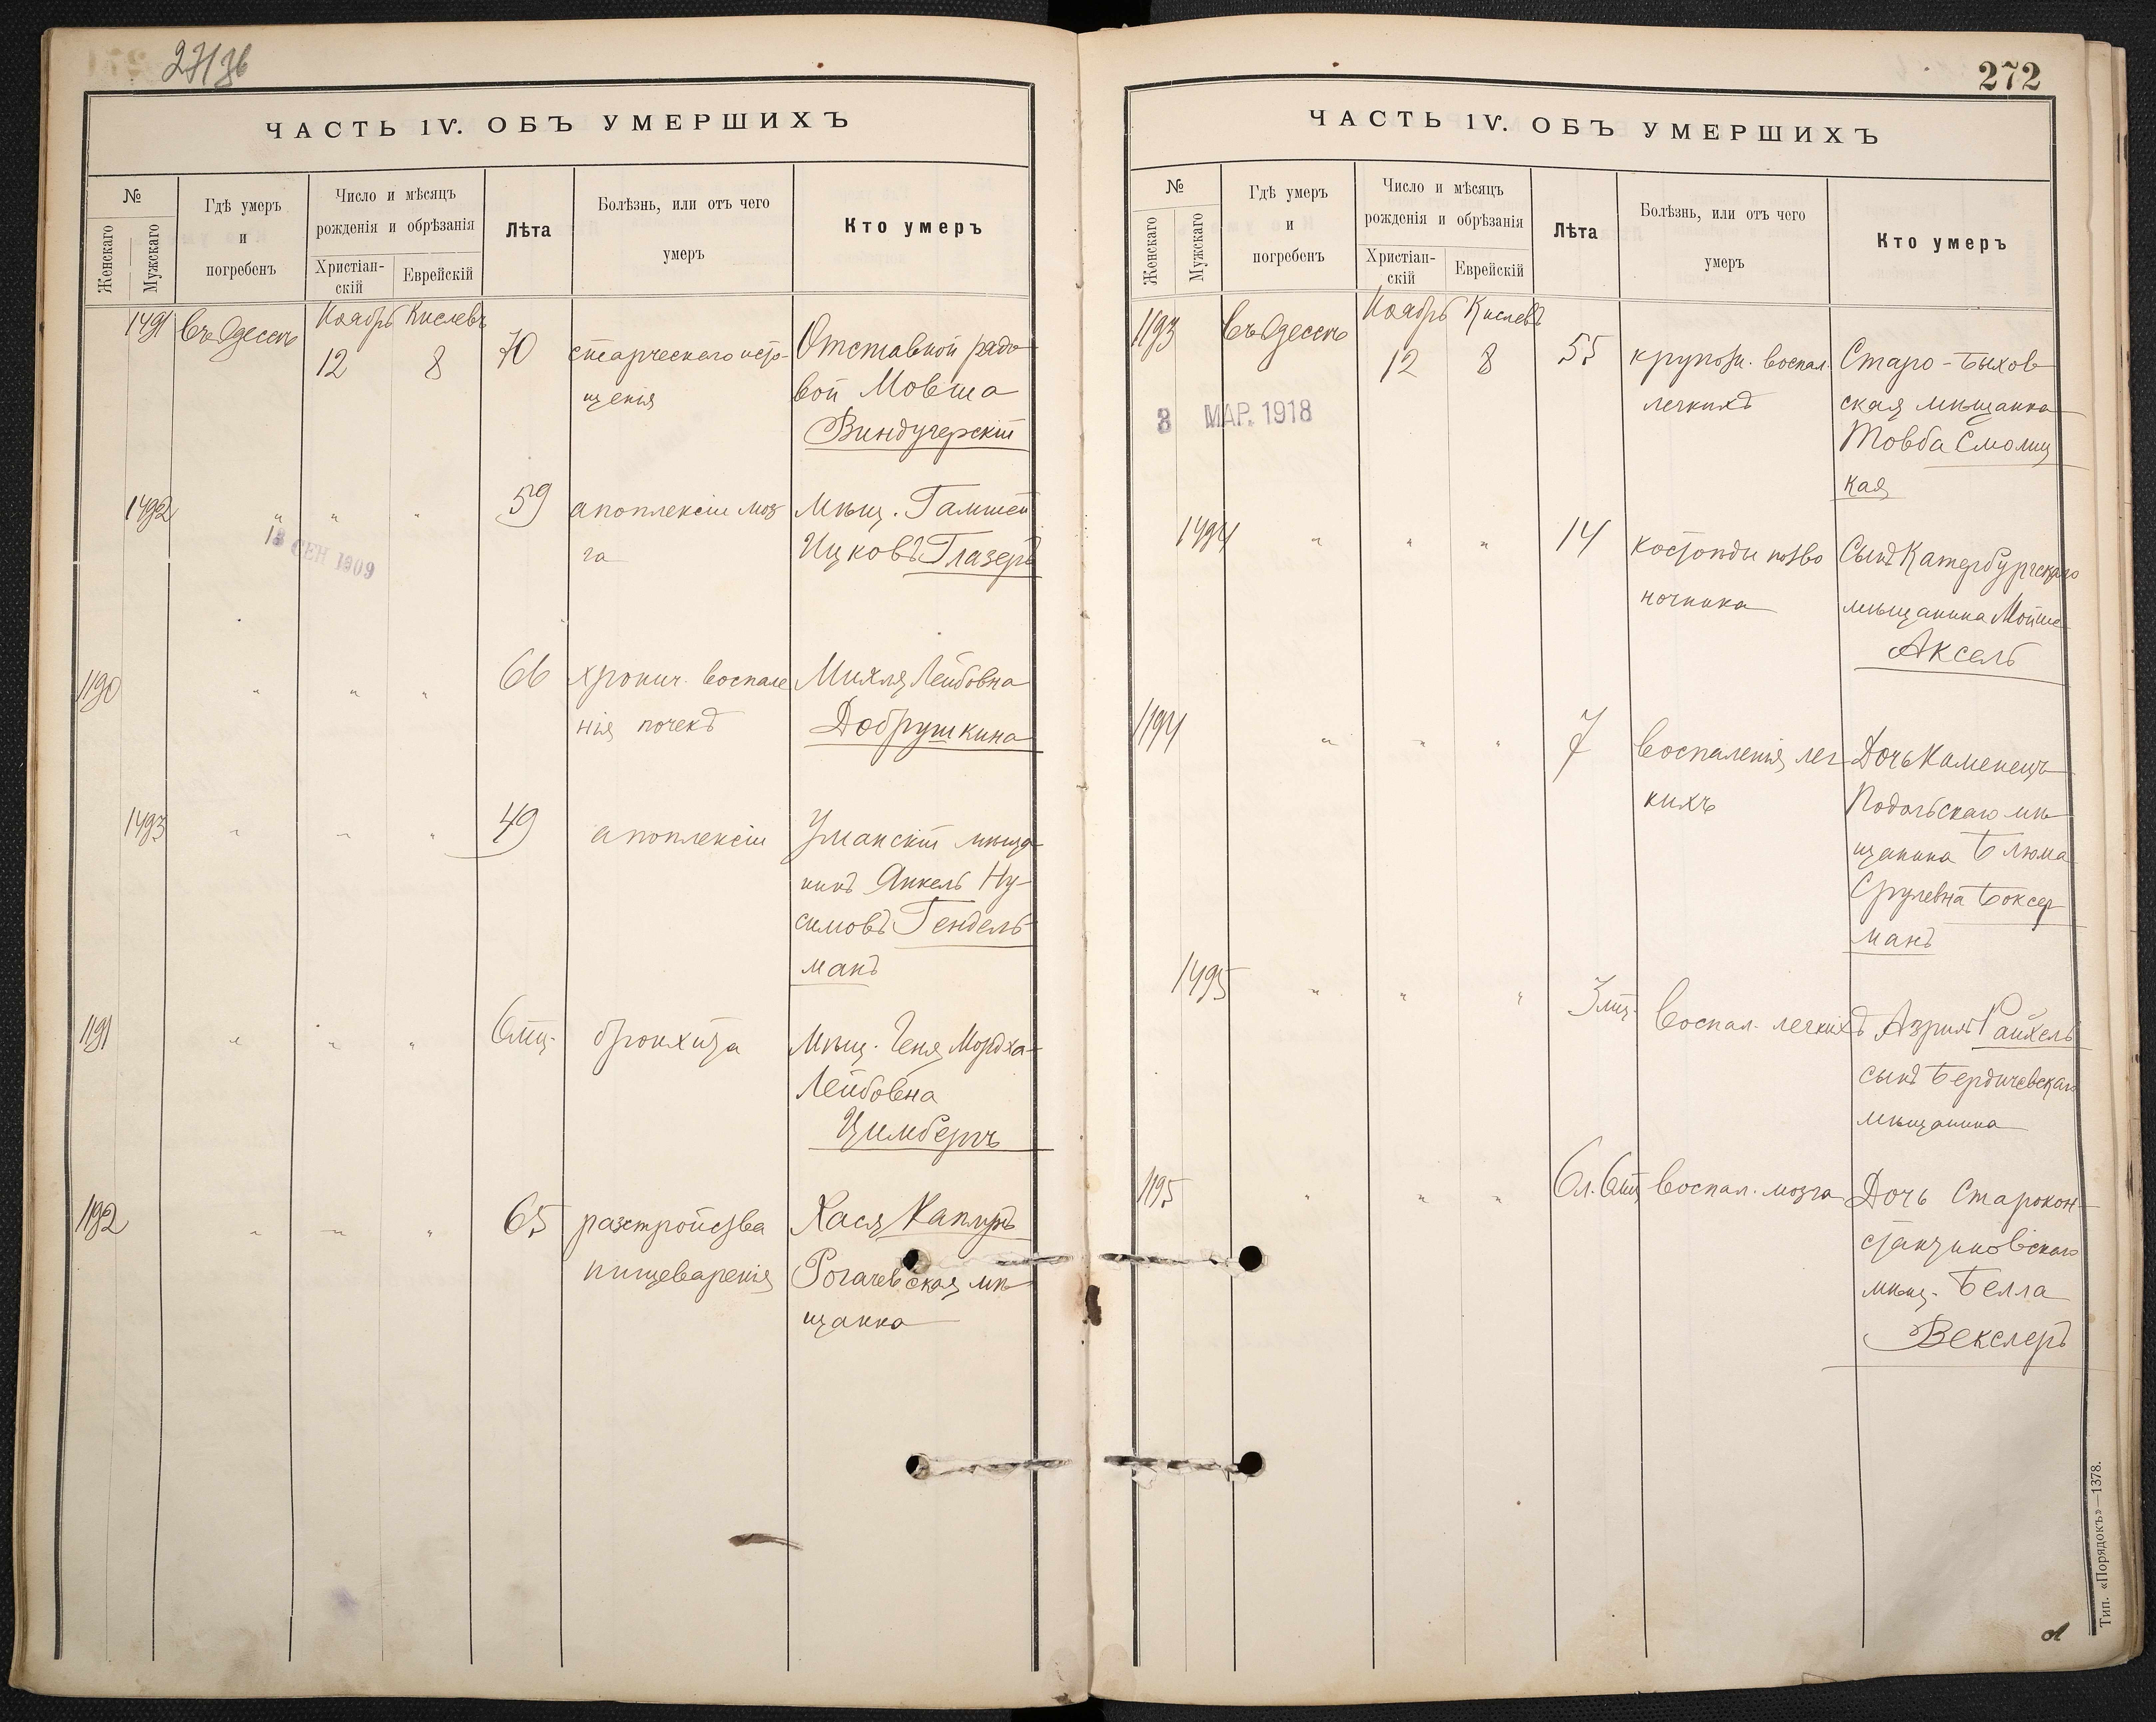 271 зв
ЧАСТЬ IV. ОБЪ УМЕРШИХЪ
№
Женскаго
Мужскаго
Гдѣ умеръ
и
погребенъ
Число и мѣсяцъ
рожденія и обрѣзанія
Христіан-
скій
Еврейскій
Лѣта
Болѣзнь, или отъ чего
умеръ
Кто умеръ
Ноябрь Кислевъ
1491 въ Одессѣ 12 8 70 старческаго исто- Отставной рядо
щенія вой Мовша
Виндучерскій
1492 " " " 59 апоплексіи моз Мѣщ.
га Ицковъ Глазеръ
18 СЕН 1909
1190 " " " 66 хронич. воспале Михля Лейбовна
нія почекъ Добрушкина
1493 " " " 49 апоплексіи Уманскій мѣща
нинъ Янкель Ну-
симовъ Гендель
манъ
1191 " " " 6 мц. бронхита Мѣщ. Геня Мордха-
Лейбовна
Цимбергъ
1192 " " " 65 разстройства Хася Капляръ
пищеваренія Рогачевская мѣ
щанка
272
ЧАСТЬ IV. ОБЪ УМЕРШИХЪ
№
Женскаго
Мужскаго
Гдѣ умеръ
и
погребенъ
Число и мѣсяцъ
рожденія и обрѣзанія
Христіан-
скій
Еврейскій
Лѣта
Болѣзнь, или отъ чего
умеръ
Кто умеръ
Ноябрь Кислевъ
1193 въ Одессѣ 12 8 55 крупозн. воспал. Старо-Быхов
легкихъ ская мѣщанка
3 МАР. 1918
Товба Смолиц
кая
1494 " " " 14 костоѣди позво Сынъ Катербургскаго
ночника мѣщанина Мойше
Аксель
1194 " " " 7 воспаленія лег Дочь Каменецъ
кихъ Подольскаго мѣ
щанина Блюма
Срулевна Боксер
манъ
1495 " " " 3 мц. воспал. легкихъ Азриль Райхель
сынъ Бердичевскаго
мѣщанина
1195 " " " 6 л. 6 мц воспал. мозга Дочь Старокон-
стантиновскаго
мѣщ. Белла
Векслеръ
Тип. «Порядокъ»—1378.